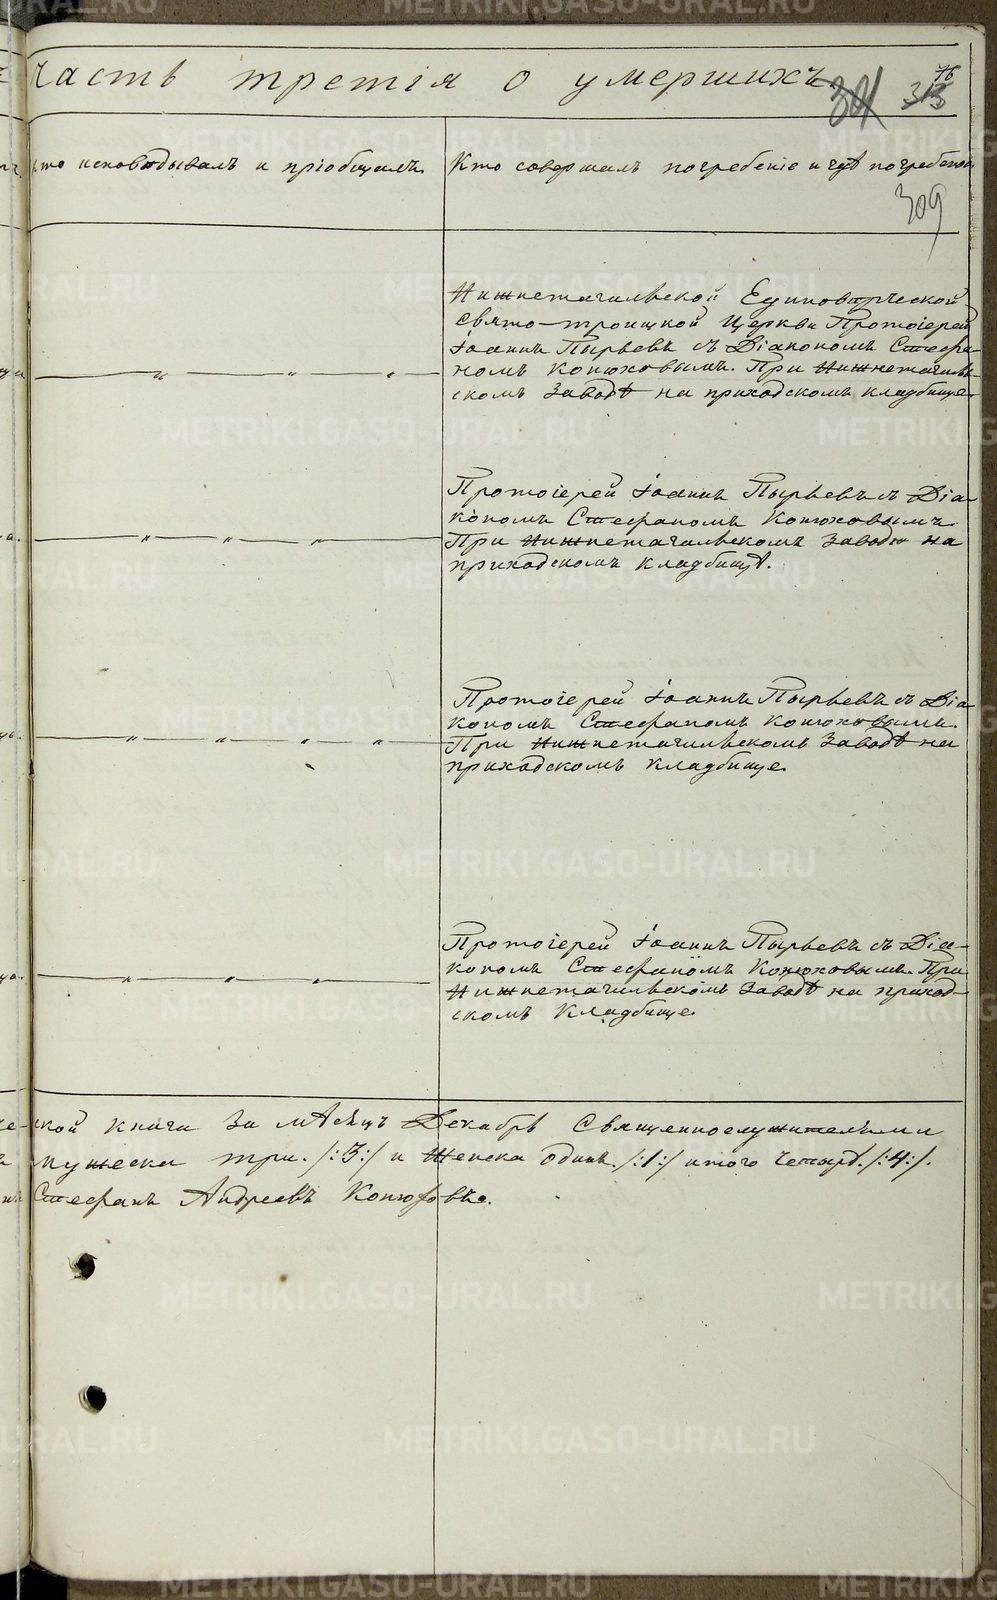 Часть третія о умершихъ.
301 313
76
Кто исповѣдывалъ и пріобщалъ.
Кто совершалъ погребеніе и гдѣ погребены
309
Нижнетагильской Единовѣрческой
Свято-троицкой Церкви Протоіерей
Іоаннъ Пырьевъ съ Діакономъ Стефа-
номъ Конюховымъ. При Нижнетагиль-
скомъ Заводѣ на приходскомъ кладбище.
Протоіерей Іоаннъ Пырьевъ съ Діа-
кономъ Стефаномъ Конюховымъ
При Нижнетагильскомъ Заводѣ на
приходскомъ кладбищѣ.
Протоіерей Іоаннъ Пырьевъ съ Діа-
кономъ Стефаномъ Конюховымъ.
При Нижнетагильскомъ Заводѣ на
приходскомъ кладбище.
Протоіерей Іоаннъ Пырьевъ съ Діа-
кономъ Стефаномъ Конюховымъ. При
Нижнетагильскомъ Заводѣ на приход-
скомъ Кладбище.
ской книга За мѣсяцъ Декабрь Священнослужителями
мужеска три. /:3:/ и Женска одинъ. /:1:/ итого Четыр. /:4:/.
Стефанъ Андреевъ Конюховъ.
METRIKI.GASO-URAL.RU